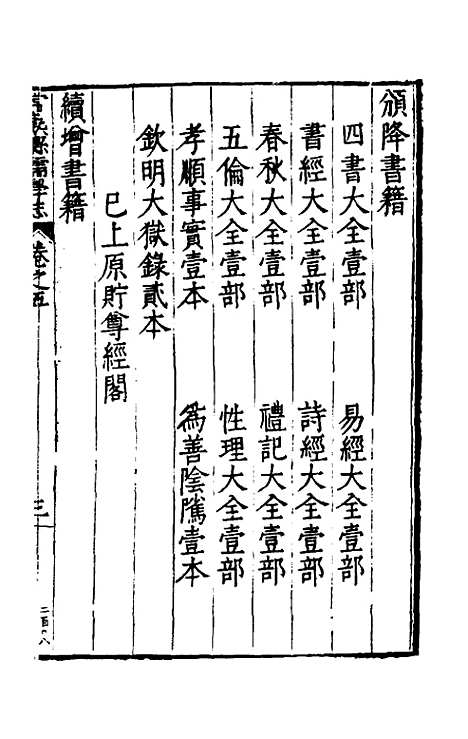 頒降書籍
四書大全壹部 易經大全壹部
書經大全壹部 詩經大全壹部
春秋大全壹部 禮記大全壹部
五倫大全壹部 性理大全壹部
孝順事實壹本 為善陰隲壹本
欽明大獄錄貳本
已上原貯尊經閣
續增書籍
常熟縣儒學志 卷之五 三
二百八